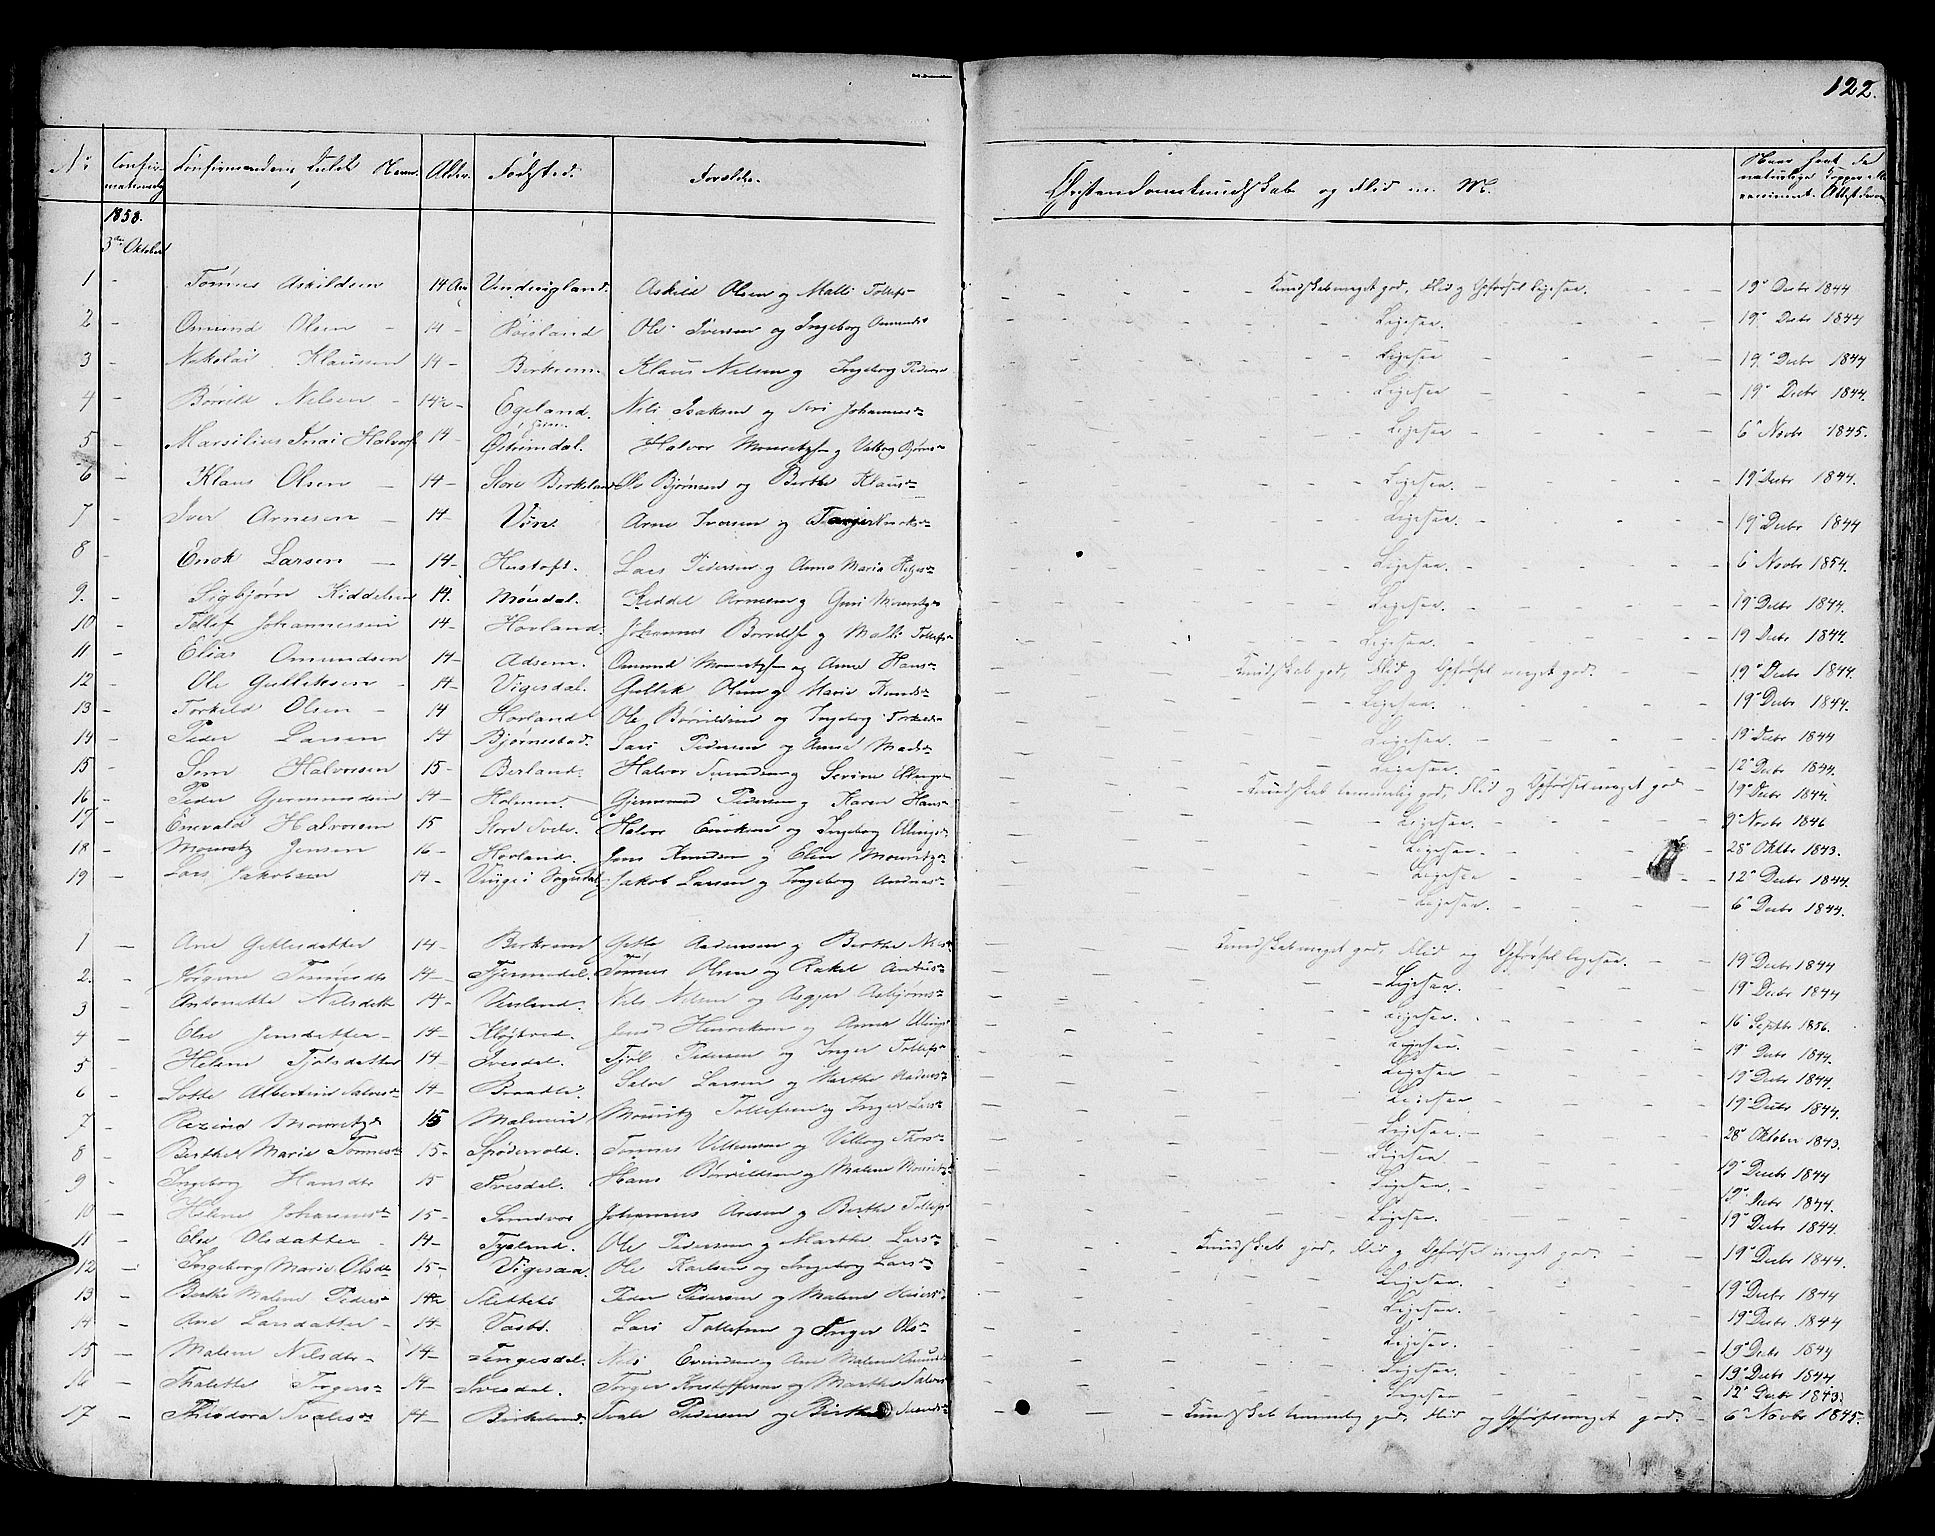 122.
No Confirmationsdag Confirmandens fulde Navn. Alder Fødested. Forældre. Christendomskundskab og Flid m. M. Naar havt de naturlige Kopper eller vaccineret. Attest derom
1858.
3die Oktober
1 - Tønnes Askildsen 14 Aar Vindingland. Askild Olsen og Malli Tollefs Kundskab meget god, Flid og Opførsel ligesaa. 19 Decbr 1844
2 - Omund Olsen - 14 - Røisland Ole Iversen og Ingeborg Omunds Ligesaa. 19 Decbr 1844
3 - Nikolai Klausen 14 - Birkrem Klaus Nilsen og Ingeborg Peders Ligesaa 19 Decbr 1844
4 - Børrild Nilsen - 14 - Egeland. Nils Isaksen og Siri Johannesd Ligesaa 19 Decbr 1844.
5 - Marsilius Halvors 14 - Østrimdal. Halvor Mouritzs og Valborg Bjørnsd Ligesaa 6 Novbr 1845.
6 - Klaus Olsen - 14 - Store Birkeland Ole Bjørnsen og Berthe Klausd Ligesaa. 19 Decbr 1844.
7 - Iver Arnesen - 14 - Arne Iversen og Ligesaa. 19 Decbr 1844
8 - Enok Larsen - 14 - Hustoft. Lars Pedersen og Anne Maria Helgesd Ligesaa. 6 Novbr 1854.
9. - Sigbjørn Kiddelsen 14. Møisdal. Kiddel Arnesen og Guri Mouritzd Ligesaa. 19 Decbr 1844.
10 - Tollef Johannessen 14 - Hovland. Johannes Børrilds og Malli Tollefs Ligesaa. 19 Decbr 1844.
11 - Elias Omundsen 14 - Adsem. Omund Mouritzs og Anne Hansd Kundskab god, Flid og Opførsel meget god. 19 Decbr 1844.
12 - Ole Gulliksen - 14 - Vigesdal. Gullik Olsen og Marie Knudsd Ligesaa. 19 Decbr 1844.
13 - Torkild Olsen - 14 Hovland Ole Børrildsen og Ingeborg Torkildsd Ligesaa. 19 Decbr 1844
14 - Peder Larsen 14 Bjørnestad. Lars Pedersen og Anne Madsd Ligesaa. 12 Decbr 1844.
15 - Sem Halvorsen 15 - Berland. Halvor og Serine Ellings Kundskab temmelig god, Flid og Opførsel meget god 19 Decbr 1844.
16 - Peder Gjermundsen 14 - Holmen. Gjermund Pedersen og Karen Hansd Ligesaa. 9 Novbr 1846
17 - Enevald Halvorsen 15 Store Svele. Halvor Eriksen og Ingeborg Ellings Ligesaa. 28 Oktbr 1843.
18 - Mouritz Jensen 16 - Hovland. Jens Knudsen og Elen Mouritzd Ligesaa 12 Decbr 1844.
19 - Lars Jakobsen 14 - Jakob Larsen og Ingeborg Andreasd Ligesaa. 6 Decbr 1844.
1 - Ane Gittesdatter 14 - Birkrem Gitle Aadensen og Berthe Nils Kundskab meget god, Flid og Opførsel ligesaa. 19 Decbr 1844
2. - Jørgine Tønnesdtr 14 - Tjørnedal. Tønnes Olsen og Rakel Andreasd Ligesaa. 19 Decbr 1844
3 - Antonette Nilsdtr 14 - Nils Nilsen og Asgjer Asbjørnsd Ligesaa. 16 Septbr 1856.
4 - Else Jensdatter - 14 - Kløgtved Jens Henriksen og Anna Ellings Ligesaa. 19 Decbr 1844.
5 - Helene Tjølsdatter 14 - Ivesdal. Tjøl Pedersen og Inger Tollefs Ligesaa 19 Decbr 1844.
6 - Lotte Albertine Salvesd 14 - Salve Larsen og Marthe Ligesaa. 19 Decbr 1844.
7 - Rezine Mouritzd 15 Malmein Mouritz Tollefsen og Inger Larsd Ligesaa. 28 Oktober 1843.
8 - Berthe Marie Tønnesd 15 - Spødervold. Tønnes Villumsen og Valborg Thorsd Ligesaa. 19 Decbr 1844
9 - Ingeborg Hansdtr 15 Ivesdal. Hans Børrildsen og Malene Mouritzd Ligesaa. 19 Decbr 1844.
10 - Helene Johannesd 15 - Johannes Aresen og Berthe Tollefs Ligesaa. 19 Decbr 1844.
11 - Elen Olsdatter - 14 - Tysland. Ole Pedersen og Marthe Larsd Kundskab god, Flid og Opførsel meget god. 19 Decbr 1844.
12 - Ingeborg Marie Olsd 15 - Vigesaa. Ole Karlsen og Ingeborg Larsd Ligesaa. 19 Decbr 1844
13 - Berthe Malene Peders 14 Slettebø Peder Pedersen og Malene Ligesaa. 19 Decbr 1844
14 - Ane Larsdatter - 14 - Vasbø. Lars Tollefsen og Inger Olsd Ligesaa. 19 Decbr 1844
15 - Malene Nilsdtr - 14 - Tengesdal. Nils Evindsen og Ane Malene Ligesaa. 19 Decbr 1844
16 - Thalette Torgersd 14 - Ivesdal. Torger Kristoffersen og Marthe Salves Ligesaa 12 Decbr 1843.
17 - Theodora Tvalesd 14 - Birkeland Tvale Pedersen og Birthe Kundskab temmelig god, Flid og Opførsel meget god. - 6 Novbr 1845.